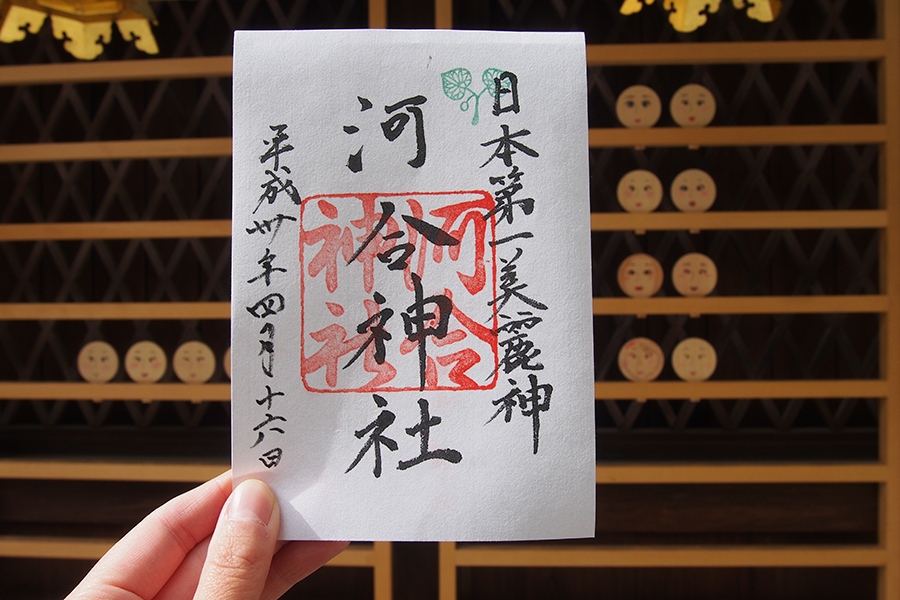 日本第一美麗神
河合神社
河合
神社
平成卅年四月十六日